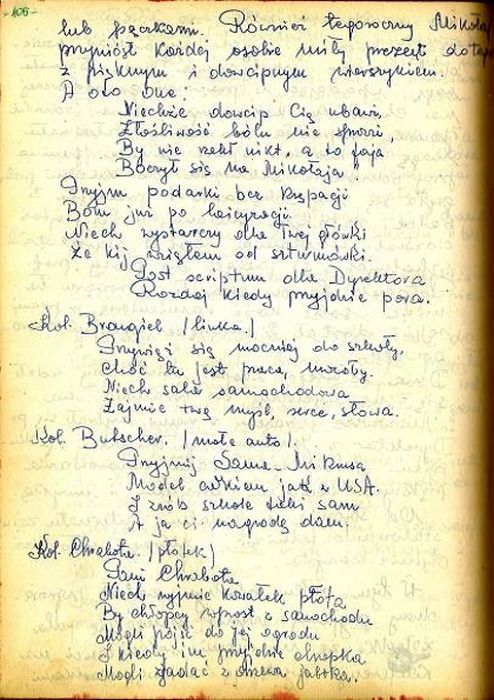 - 106 -
lub pączkami. Również tegoroczny Mikołaj
przyniósł każdej osobie miły prezent
z pięknym i dowcipnym wierszykiem.
A oto one:
Niechże dowcip Cię ubawi,
Złośliwość bólu nie sprawi,
By nie rzekł nikt, a to faja
Boczył się na Mikołaja!
Przyjm podarki bez krępacji
Bom już po licytacji.
Niech wystarczy dla Twej główki
Że kij wziąłem od szturmówki.
Post scriptum dla Dyrektora
Rozdaj kiedy przyjdzie pora.
Kol. (linka.)
Przywięź się mocniej do szkoły,
Choć tu jest praca, mozoły.
Niech sala samochodowa
Zajmie twą myśl, serce, słowa.
Kol. Butscher. (małe auto).
Przyjmij Sama - Mikusa
Model autkiem jak z USA.
I zrób szkole taki sam
A ja ci nagrodę dam.
Kol. Chrabota. (płotek)
Pani Chrabota
Niech wyjmie kawałek płota
By chłopcy wprost z samochodu
Mogli pójść do jej ogrodu
I kiedy im przyjdzie chrapka
Mogli zjadać z drzewa jabłka.